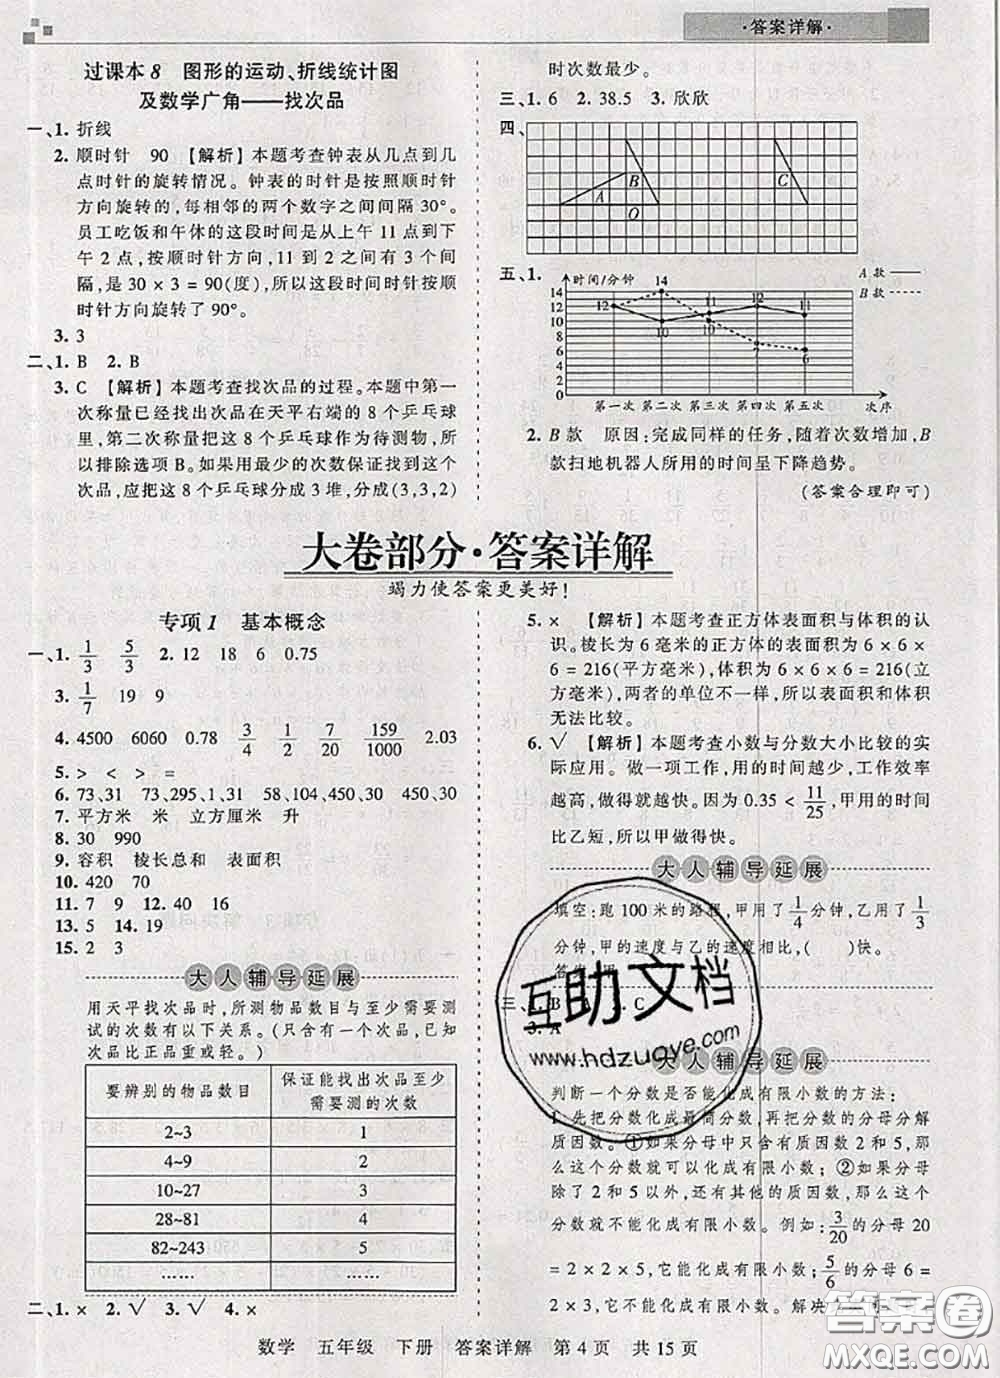 ·答案详解·
过课本 8 图形的运动、折线统计图
及数学广角——找次品
一、1. 折线
2. 顺时针 90 【解析】本题考查钟表从几点到几
点时针的旋转情况。钟表的时针是按照顺时针
方向旋转的,每相邻的两个数字之间间隔 30°。
员工吃饭和午休的这段时间是从上午 11 点到下
午 2 点,按顺时针方向,11 到 2 之间有 3 个间
隔,是 30 × 3 = 90(度),所以这段时间时针按顺
时针方向旋转了 90°。
3. 3
二、1. B 2. B
3. C 【解析】本题考查找次品的过程。本题中第一
次称量已经找出次品在天平右端的 8 个乒乓球
里,第二次称量这 8 个乒乓球作为待测物,所
以排除选项 B。如果用最少的次数保证找到这个
次品,应把这 8 个乒乓球分成 3 堆,分成(3,3,2)
时次数最少。
三、1. 6 2. 38.5 3. 欣欣
四、
A B O C
五、1.
时间/分钟
A 款
B 款
14
12
10
8
6
4
2
0
12 14 10 11 10 12 7 11 6
第一次 第二次 第三次 第四次 第五次 次序
2. B 款 原因:完成同样的任务,随着次数增加,B
款扫地机器人所用的时间呈下降趋势。
(答案合理即可)
大卷部分·答案详解
竭力使答案更美好!
专项 1 基本概念
一、1. 1/3 5/3 2. 12 18 6 0.75
3. 1/7 19 9
4. 4500 6060 0.78 3/4 1/2 7/20 159/1000 2.03
5. > < > =
6. 73,31 73,295,1,31 58,104,450,30 450,30
7. 平方米 米 立方厘米 升
8. 30 990
9. 容积 棱长总和 表面积
10. 420 70
11. 7 9 12. 40 16
13. 5 14. 19
15. 2 3
大人辅导延展
用天平找次品时,所测物品数目与至少需要测
试的次数有以下关系。(只含有一个次品,已知
次品比正品重或轻。)
要辨别的物品数目 保证能找出次品至少需要测的次数
2~3 1
4~9 2
10~27 3
28~81 4
82~243 5
…… ……
二、1. × 2. √ 3. √ 4. ×
5. × 【解析】本题考查正方体表面积与体积的认
识。棱长为 6 毫米的正方体的表面积为 6 × 6 ×
6 = 216(平方毫米),体积为 6 × 6 × 6 = 216(立
方毫米),两者的单位不一样,所以表面积和体积
无法比较。
6. √ 【解析】本题考查小数与分数大小比较的实
际应用。做一项工作,用的时间越少,工作效率
越高,做得就越快。因为 0.35 < 11/25 ,甲用的时间
比乙短,所以甲做得快。
大人辅导延展
填空:跑 100 米的路程,甲用了 1/4 分钟,乙用了 1/3
分钟,甲的速度与乙的速度相比,( )快。
B C
3. A
大人辅导延展
判断一个分数是否能化成有限小数的方法:
1. 先把分数化成最简分数,再把分数的分母分解
质因数。①如果分母中只含有质因数 2 和 5,那
么这个分数就可以化成有限小数;②如果分母
除了 2 和 5 以外,还有其他的质因数,那么这个
分数就不能化成有限小数。例如: 3/20 的分母 20
= 2 × 2 × 5,它能化成有限小数; 5/6 的分母 6 =
2 × 3,它不能化成有限小数。解决
互助文档
www.hdzuoye.com
答案圈
MXQE.COM
数学 五年级 下册 答案详解 第 4 页 共 15 页